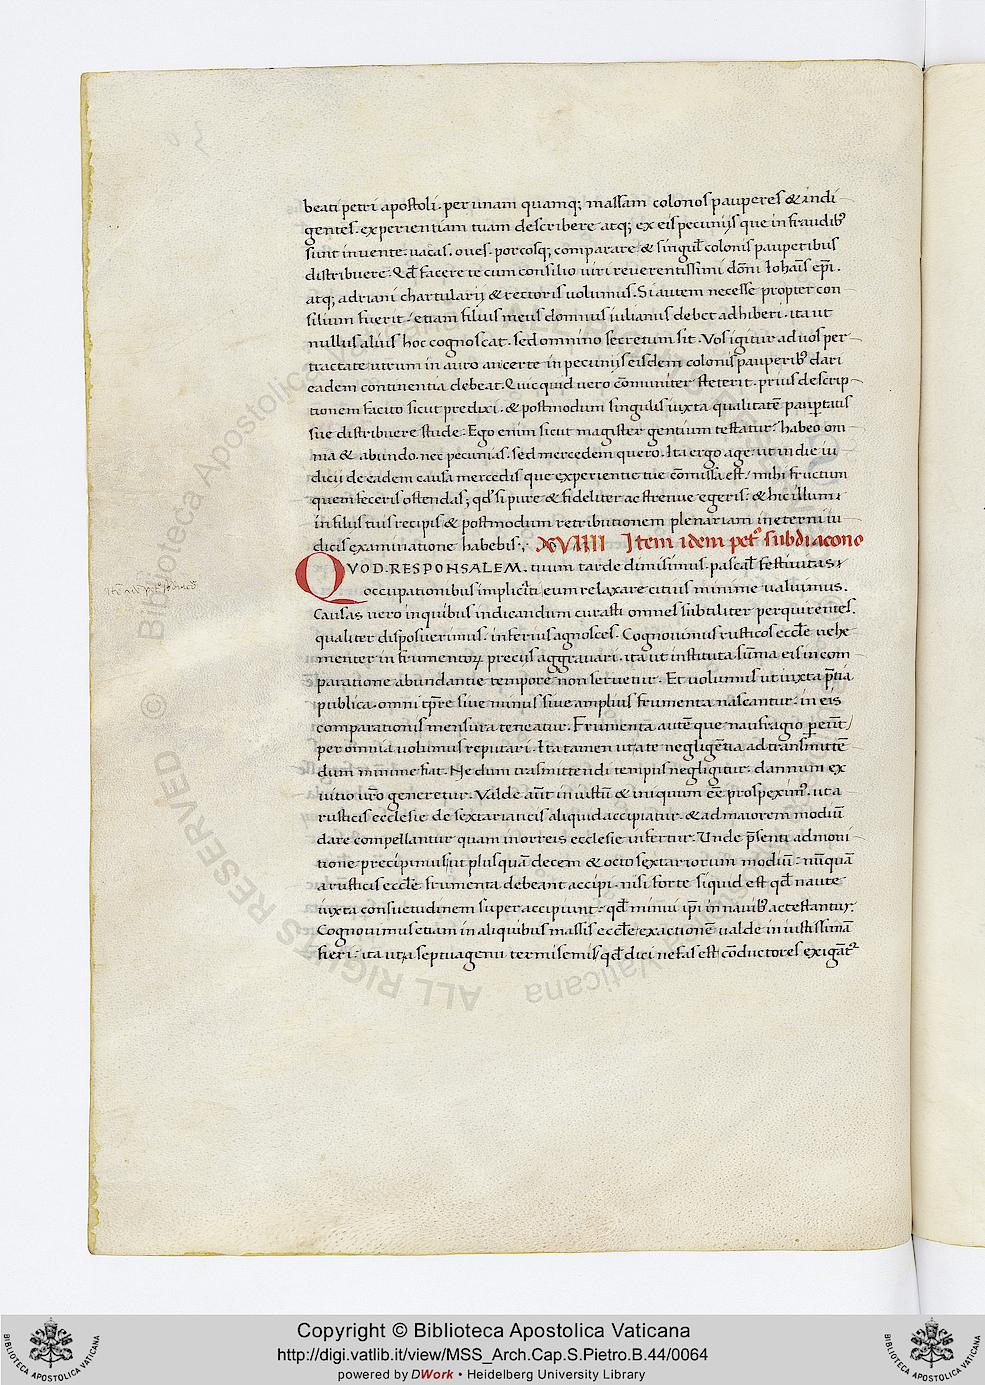 beati petri apostoli. per unam quamq; massam colonos pauperes & indi
gentes. experientiam tuam describere atq; ex eis pecunijs que in fraudib⁹
sunt inuente. uacas. oues. porcosq; comparare & singul̄ colonis pauperibus
distribuere. Qd̄ facere te cum consilio uiri reuerentissimi dōni Iohan̄is ep̄i.
atq; adriani chartularij & rectoris uolumus. Si autem necesse propter con
silium fuerit. etiam filius meus domnus iulianus debet adhiberi. ita ut
nullus alius hoc cognoscat. sed omnino secretum sit. Vos igitur ad uos per
tractate utrum in auro an certe in pecunijs eisdem colonis pauperib⁹ dari
eadem continentia debeat. Quicquid uero cōmuniter steterit. prius descrip
tionem facito sicut predixi. & postmodum singulis iuxta qualitatē paup̱tatis
sue distribuere stude. Ego enim sicut magister gentium testatur. habeo om
nia & abundo. nec pecunias. sed mercedem quero. Ita ergo age. ut in die iu
dicii de eadem causa mercedis que experientie tue cōmissa est. mihi fructum
quem feceris ostendas; qd̄ si pure & fideliter ac strenue egeris. & hic illum
in filiis tuis recipis & postmodum retributionem plenariam in eterni iu
dicis examinatione habebis. XVIIII Item idem pet⁹ subdiacono
QVOD. RESPONSALEM. tuum tarde dimisimus. pascal̄ festiuitatis
occupationibus implicit̄i eum relaxare citius minime ualuimus.
Causas uero in quibus indicandum curasti omnes subtiliter perquirentes.
qualiter disposuerimus. inferius agnosces. Cognouimus rusticos eccl̄e uehe
menter in frumentoꝝ precijs aggrauari. ita ut instituta sūma eis in com
paratione abundantie tempore non seruetur. Et uolumus ut iuxta p̄tia
publica. omni tp̄re siue minus siue amplius frumenta nascantur. in eis
comparationis mensura teneatur. Frumenta autē que naufragio pereūt
per omnia uolumus reputari. Ita tamen ut a te negligētia ad transmittē
dum minime fiat. Ne dum trasmittendi tempus negligitur. damnum ex
uitio ur̄o generetur. Valde aūt iniustū & iniquum eē prospexim⁹. ut a
rusticis ecclesie de sextariaticis aliquid accipiatur. & ad maiorem modiū
dare compellantur quam in orreis ecclesie infertur. Unde p̄senti admoni
tione precipimus ut plusquā decem & octo sextariorum modiū. nūquā
a rusticis eccl̄e frumenta debeant accipi. nisi forte si quid est qd̄ naute
iuxta consuetudinem superaccipiunt. qd̄ minui ip̄i in nauib⁹ actestantur.
Cognouimus etiam in aliquibus massis eccl̄e exactionē ualde iniustissimā
fieri. ita ut a septuagenu termisemis qd̄ dici nefas est cōductores exigāt²
Copyright © Biblioteca Apostolica Vaticana
http://digi.vatlib.it/view/MSS_Arch.Cap.S.Pietro.B.44/0064
powered by DWork • Heidelberg University Library
© Biblioteca Apostolica Vaticana
ALL RIGHTS RESERVED
BIBLIOTECA APOSTOLICA VATICANA
BIBLIOTECA APOSTOLICA VATICANA